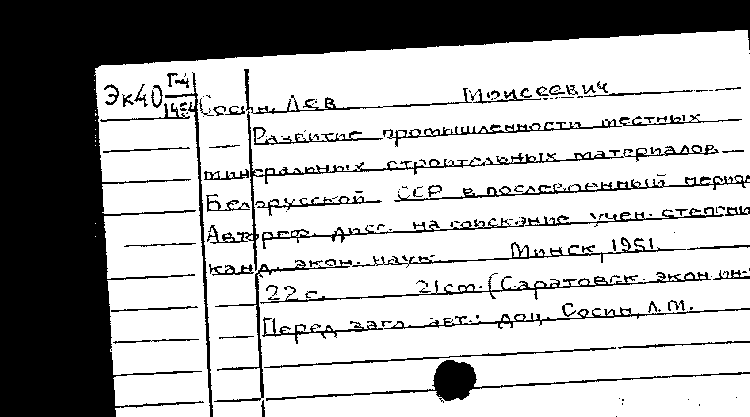 Эк40 Г-4
1454
Сосин, Лев Моисеевич
Развитие промышленности местных
минеральных строительных материалов
Белорусской ССР в послевоенный период
Автореф. дисс. на соискание учен. степени
канд. экон. наук. Минск, 1951.
22 с. 21 см. (Саратовск. экон. ин-
Перед загл. авт.: доц. Сосин, Л.М.